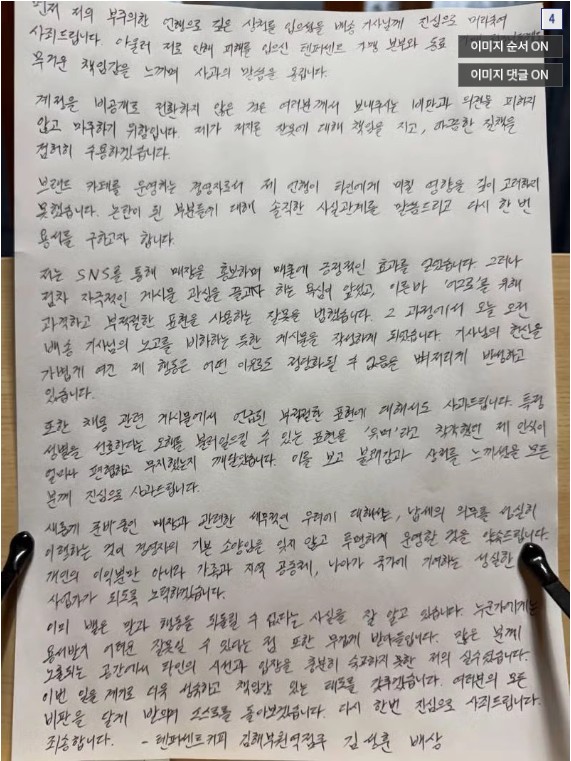 4
이미지 순서 ON
이미지 댓글 ON
먼저 저의 부주의한 언행으로 깊은 상처를 입으셨을 배송 기사님께 진심으로 머리숙여
사죄드립니다. 아울러 저로 인해 피해를 입으신 텐퍼센트 가맹 본부와 동료
무거운 책임감을 느끼며 사과의 말씀을 올립니다.
계정을 비공개로 전환하지 않은 것은 여러분께서 보내주시는 비판과 의견을 피하지
않고 마주하기 위함입니다. 제가 저지른 잘못에 대해 책임을 지고, 마땅한 질책을
겸허히 수용하겠습니다.
브랜드 카페를 운영하는 경영자로서 제 언행이 타인에게 미칠 영향을 깊이 고려하지
못했습니다. 논란이 된 부분들에 대해 솔직한 사실관계를 말씀드리고 다시 한 번
용서를 구하고자 합니다.
저는 SNS를 통해 매장을 홍보하며 매출에 긍정적인 효과를 얻었습니다. 그러나
점차 자극적인 게시물로 관심을 끌고자 하는 욕심이 앞섰고, 이른바 '어그로'를 위해
과격하고 부적절한 표현을 사용하는 잘못을 범했습니다. 그 과정에서 오늘 오전
배송 기사님의 노고를 비하하는 듯한 게시물을 작성하게 되었습니다. 기사님의 헌신을
가볍게 여긴 제 행동은 어떤 이유로도 정당화될 수 없음을 뼈저리게 반성하고
있습니다.
또한 채용 관련 게시물에서 언급된 부적절한 표현에 대해서도 사과드립니다. 특정
성별을 선호한다는 오해를 불러일으킬 수 있는 표현을 '유머'라고 착각했던 제 인식이
얼마나 편협하고 무지했는지 깨달았습니다. 이를 보고 불쾌감과 상처를 느끼셨을 모든
분께 진심으로 사과드립니다.
새롭게 준비 중인 매장과 관련한 세무적인 우려에 대해서는, 납세의 의무를 성실히
이행하는 것이 경영자의 기본 소양임을 잊지 않고 투명하게 운영할 것을 약속드립니다.
개인의 이익뿐만 아니라 가족과 지역 공동체, 나아가 국가에 기여하는 성실한
사업가가 되도록 노력하겠습니다.
이미 뱉은 말과 행동을 되돌릴 수 없다는 사실을 잘 알고 있습니다. 누군가에게는
용서받기 어려운 잘못일 수 있다는 점 또한 무겁게 받아들입니다. 많은 분께
노출되는 공간에서 타인의 시선과 입장을 충분히 숙고하지 못한 저의 실수였습니다.
이번 일을 계기로 더욱 성숙하고 책임감 있는 태도를 갖추겠습니다. 여러분의 모든
비판을 달게 받으며 스스로를 돌아보겠습니다. 다시 한번 진심으로 사죄드립니다.
죄송합니다. - 텐퍼센트커피 김해부원역점주 김성훈 배상